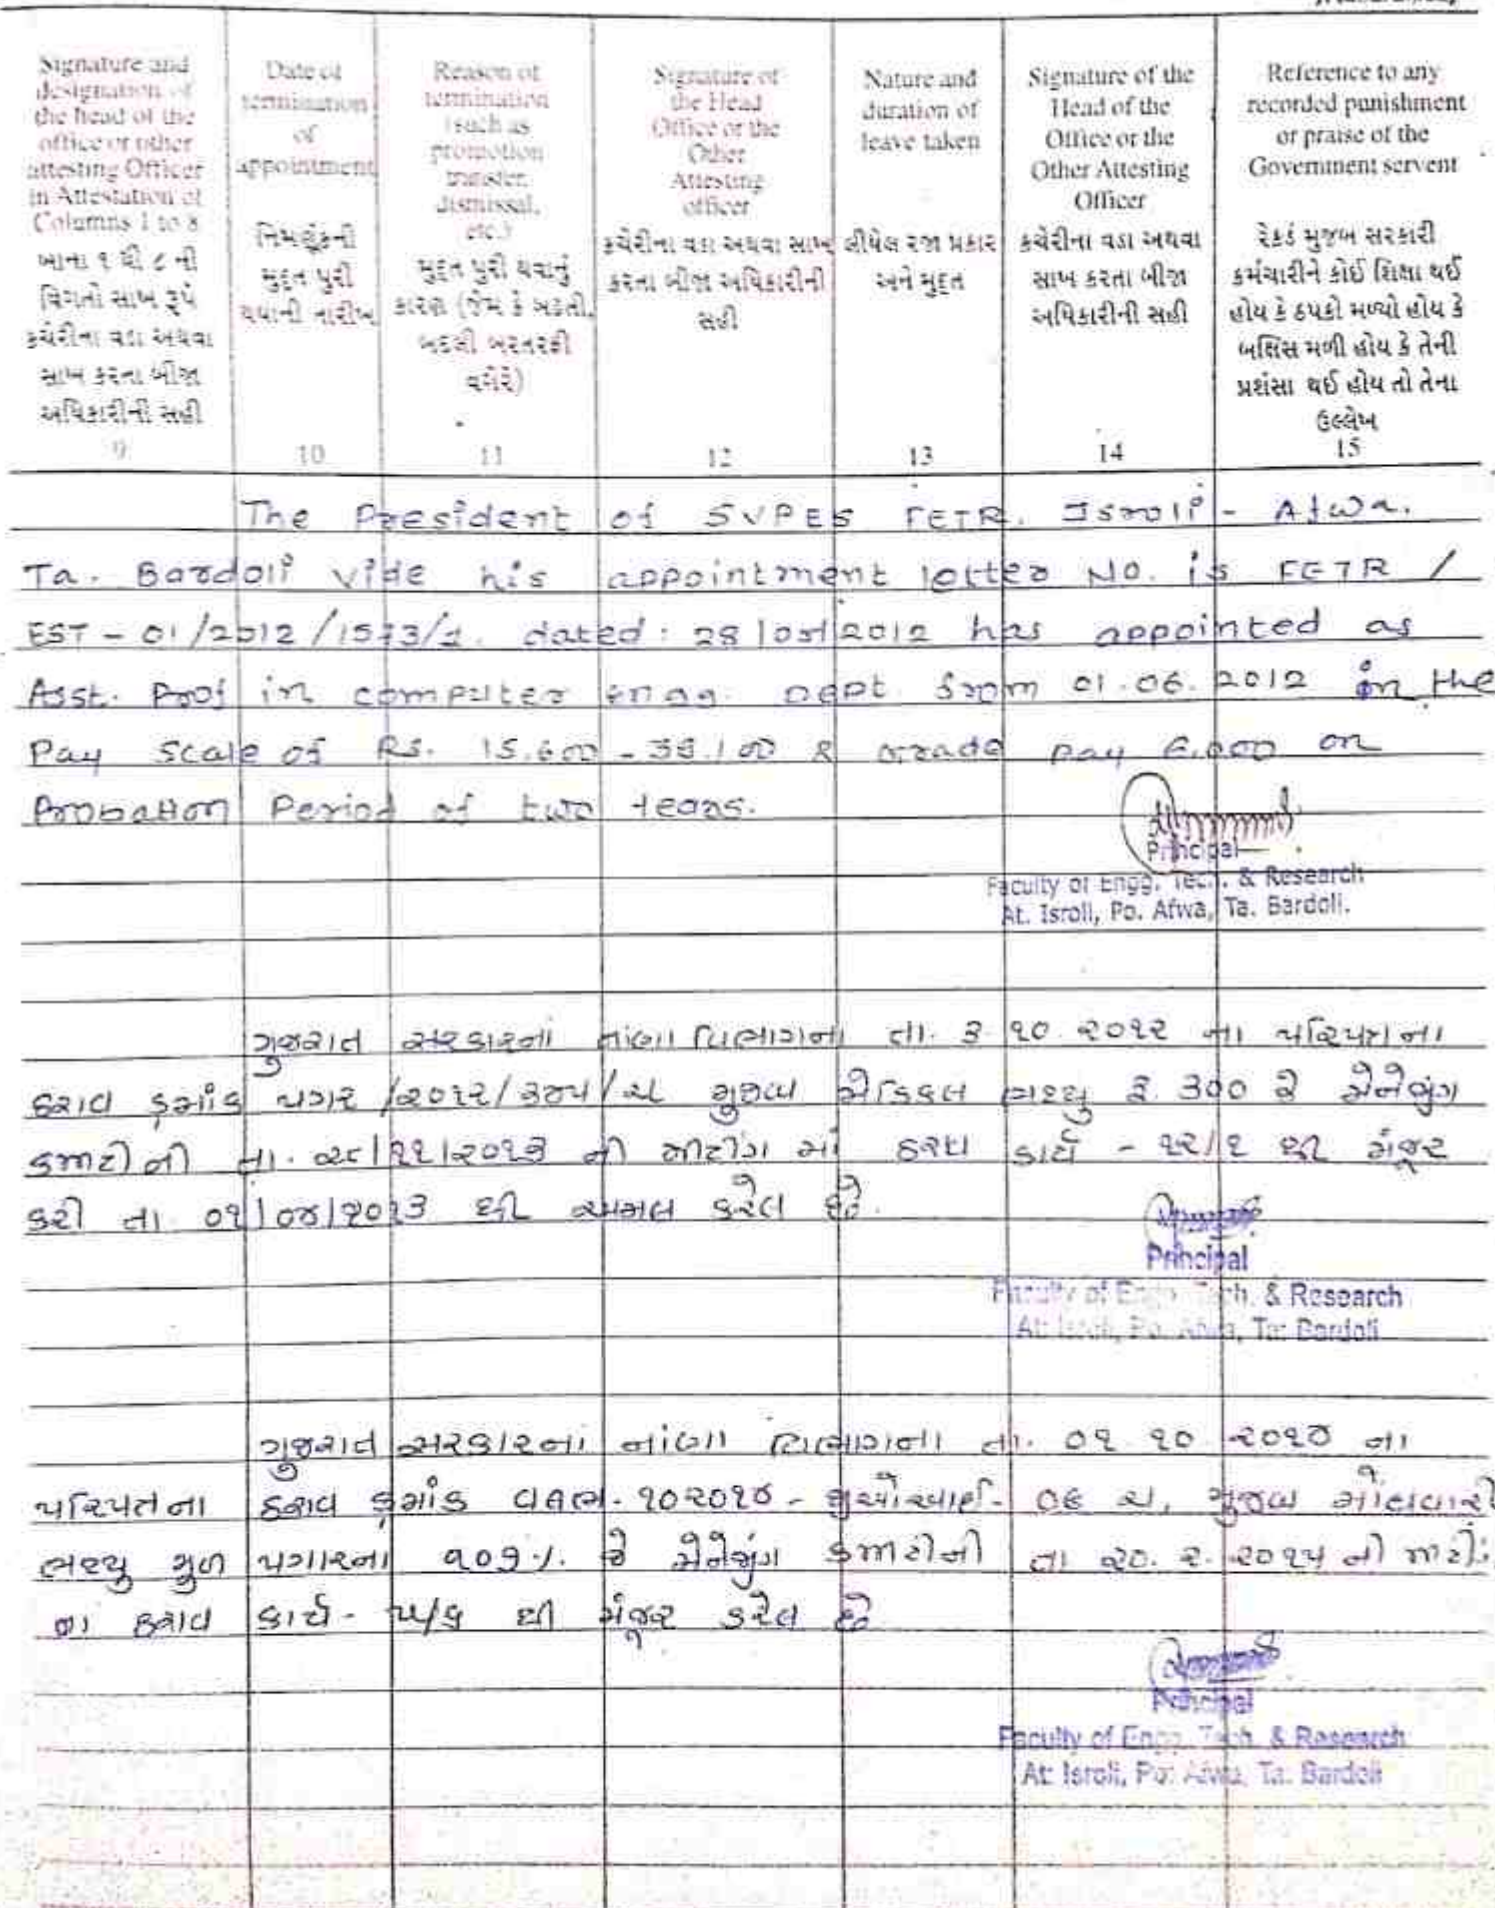 Signature and
designation of
the head of the
office or other
attesting Officer
in Attestation of
Columns 1 to 8
ખાના ૧ થી ૮ ની
વિગતો સાખ રૂપે
કચેરીના વડા અથવા
સાખ કરતા બીજા
અધિકારીની સહી
9
Date of
termination
of
appointment
નિમણૂંકની
મુદત પુરી
થયાની તારીખ
10
Reason of
termination
(such as
promotion
transfer,
dismissal,
etc.)
મુદત પુરી થવાનું
કારણ (જેમ કે બઢતી,
બદલી બરતરફી
વગેરે)
11
Signature of
the Head
Office or the
Other
Attesting
officer
કચેરીના વડા અથવા સાખ
કરતા બીજા અધિકારીની
સહી
12
Nature and
duration of
leave taken
લીધેલ રજા પ્રકાર
અને મુદ્દત
13
Signature of the
Head of the
Office or the
Other Attesting
Officer
કચેરીના વડા અથવા
સાખ કરતા બીજા
અધિકારીની સહી
14
Reference to any
recorded punishment
or praise of the
Government servent
રેકર્ડ મુજબ સરકારી
કર્મચારીને કોઈ શિક્ષા થઈ
હોય કે ઠપકો મળ્યો હોય કે
બક્ષિસ મળી હોય કે તેની
પ્રશંસા થઈ હોય તો તેના
ઉલ્લેખ
15
The President of SVPES FETR. Isroli - Afwa.
Ta. Bardoli vide his appointment letter No. is FETR /
EST - 01/2012/1573/1. dated: 28/05/2012 has appointed as
Asst. Prof in computer Engg. Dept. from 01.06.2012 in the
Pay Scale of Rs. 15,600 - 39,100 & Grade pay 6,000 on
Probation Period of two Years.
Principal
Faculty of Engg. Tech. & Research
At. Isroli, Po. Afwa, Ta. Bardoli.
ગુજરાત સરકારના નાંણા વિભાગના તા. ૩.૧૦.૨૦૧૨ ના પરિપત્રના
ઠરાવ ક્રમાંક પગર /૨૦૧૨/૩૦૫/ મુજબ મેડિકલ ભથ્થુ રૂ. 300 મેનેજીંગ
કમાટીની તા. ૨૮/૧૧/૨૦૧૩ ની મીટીંગ માં ઠરાવ કાર્ય - ૧૨/૧ થી મંજૂર
કરી તા. ૦૧/૦૪/૨૦૧૩ થી અમલ કરેલ છે.
Principal
Faculty of Engg. Tech. & Research
At: Isroli, Po. Afwa, Ta: Bardoli
ગુજરાત સરકારના નાંણા વિભાગના તા. ૦૧.૧૦.૨૦૧૪ ના
પરિપત્રના ઠરાવ ક્રમાંક વલભ-૧૦૨૦૧૦- મુજબ મોંઘવારી
ભથ્થુ મુળ પગારના ૧૦૭% મેનેજીંગ કમાટીની તા ૨૦.૨.૨૦૧૫ ની મીટીં
ના ઠરાવ કાર્ય - ૫/૬ થી મંજૂર કરેલ છે
Principal
Faculty of Engg. Tech. & Research
At: Isroli, Po: Afwa, Ta. Bardoli